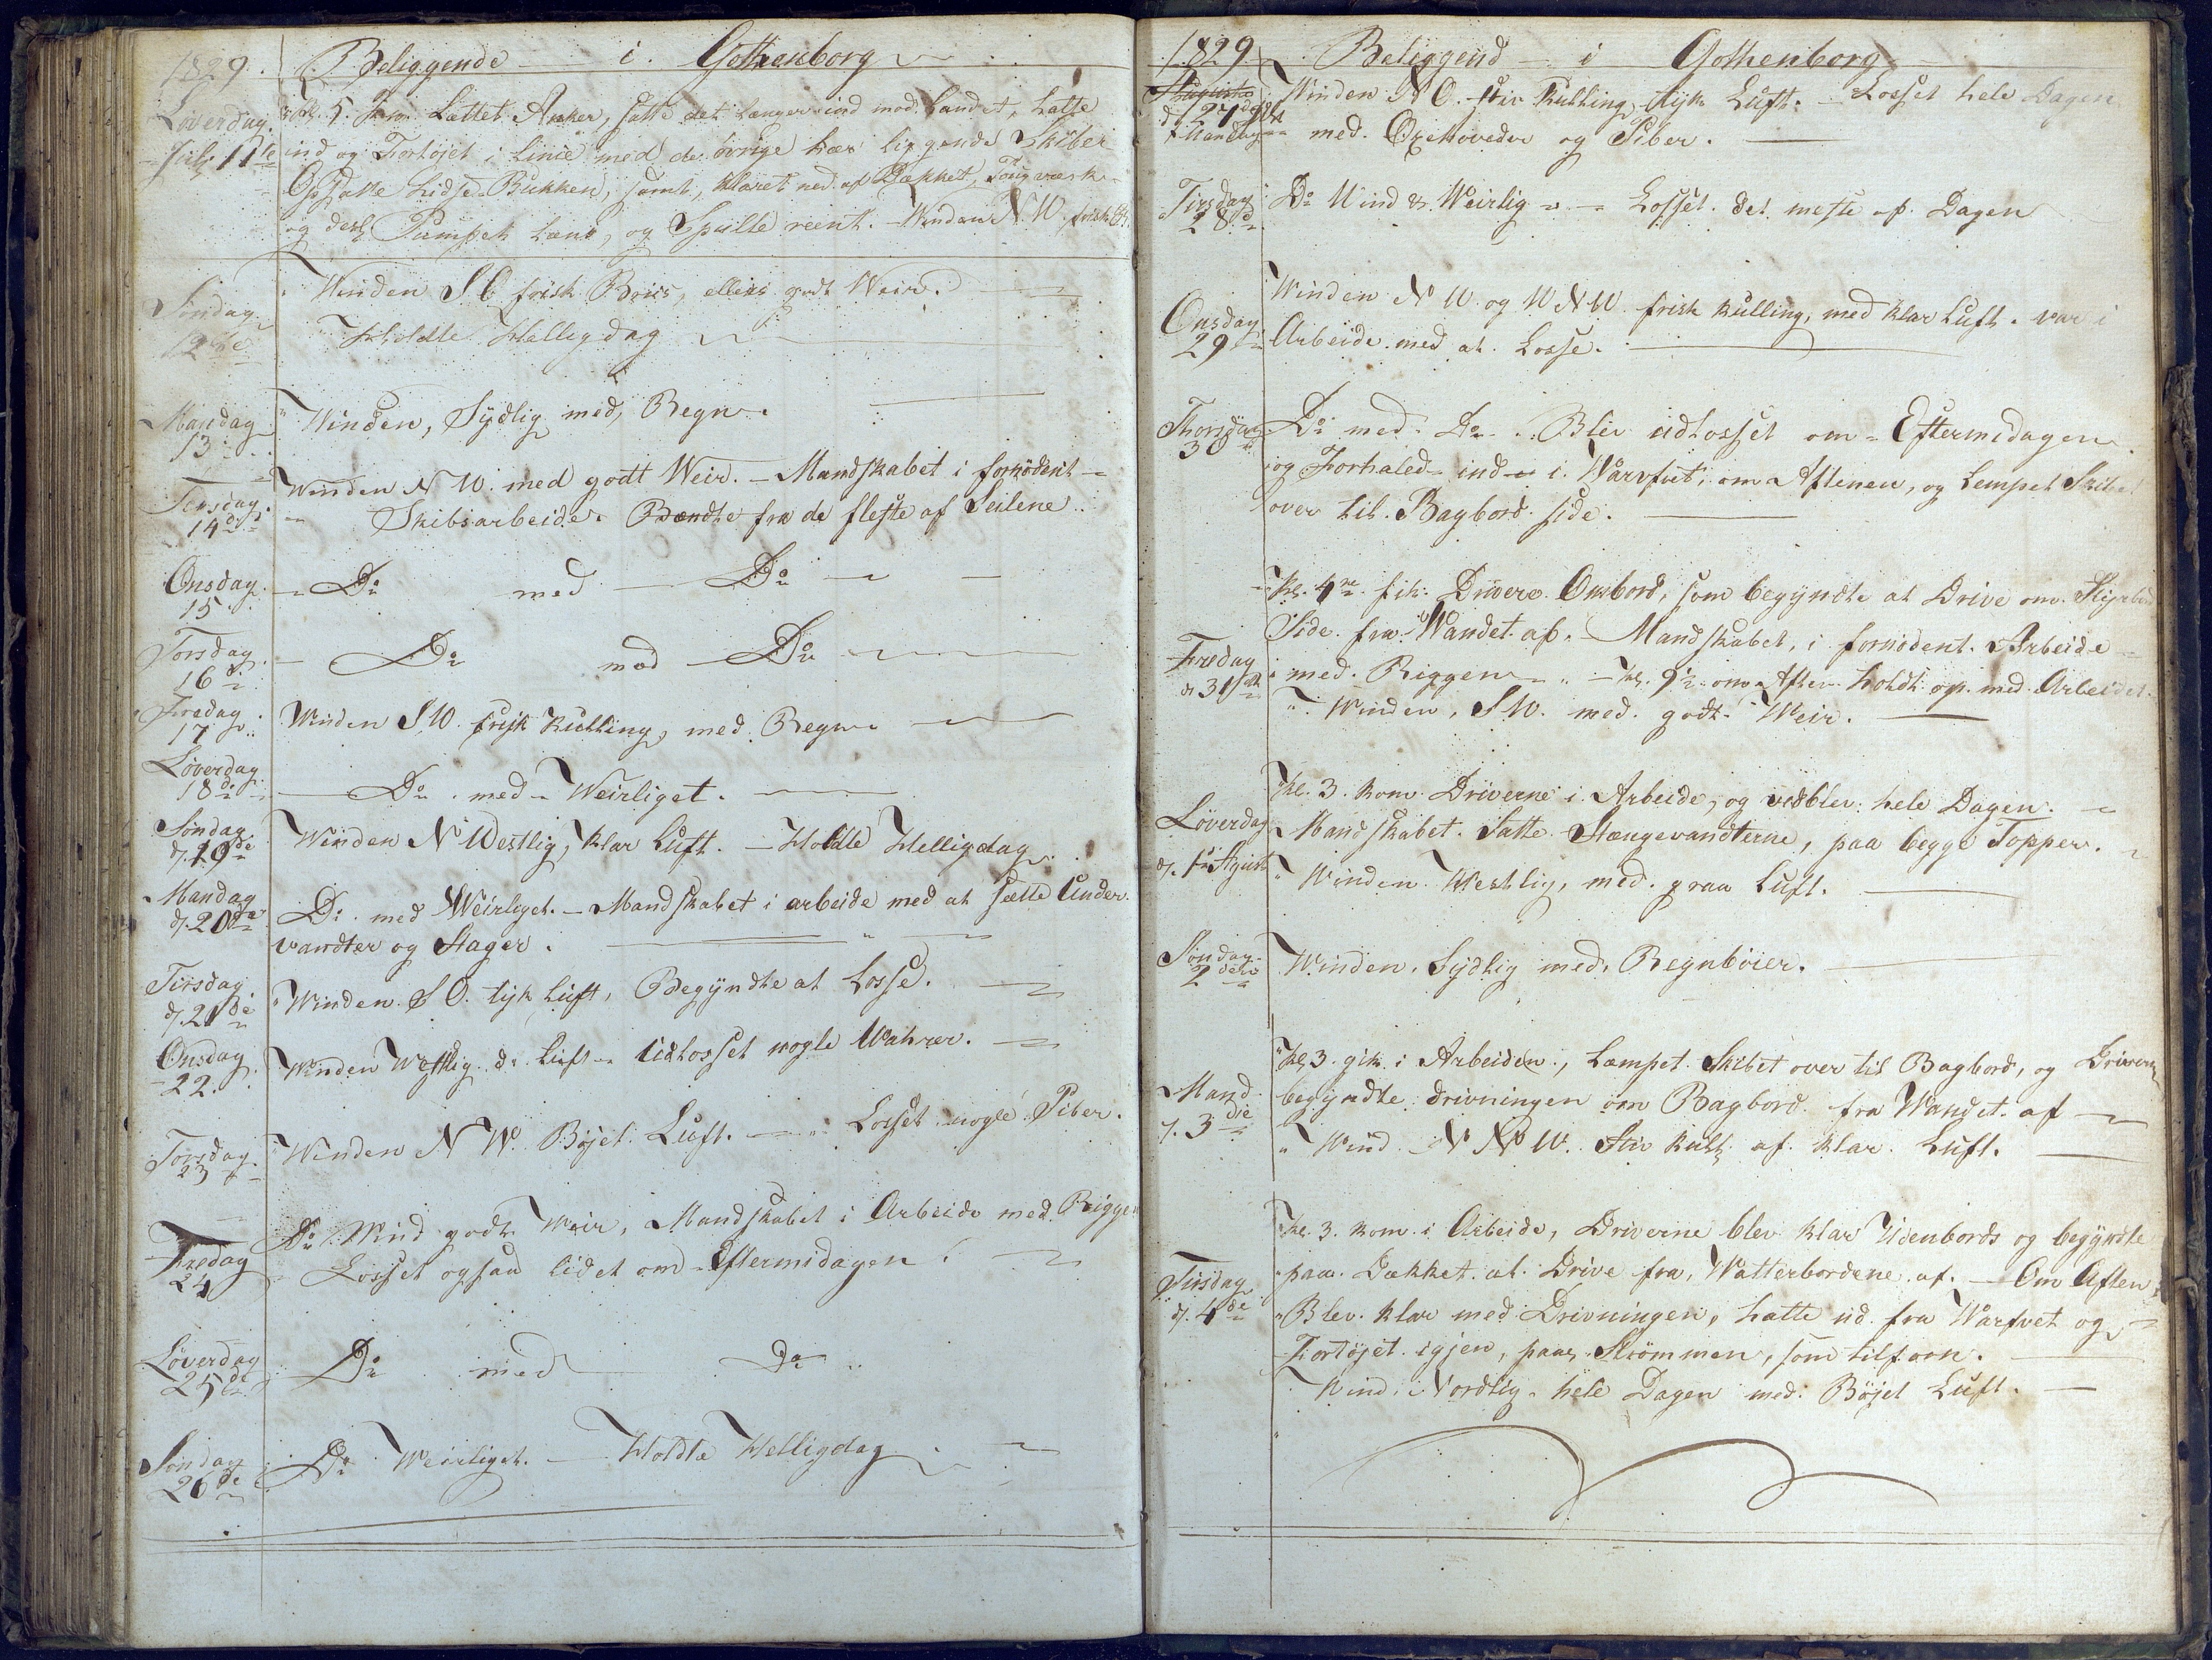 1829. Beliggende i Gothenborg
Löverdag Kl. 5. Lættet Anker, satte det længere ind mod Landet, halte
July 11te ind og Fortöjet i Linie med de övrige her liggende Skiber
Opsatte Lidse Bukken, samt, klaret ned af Dækket, Tougværk
og desl Pumpet læns, og Spulte reent. - Winden N W. frisk
Söndag Winden S O frisk Briis, ellers godt Weir.
12te Holdte Helligdag
Mandag Winden, Sydlig med, Regn.
13
Tirsdag Winden N W. med godt Weir. - Mandskabet i fornödent
14de Skibsarbeide. Bændte fra de fleste af Seilene
Onsdag Do med Do
15
Torsdag Do med Do
16de
Fredag Winden S W. frisk Kulling, med Regn.
17
Löverdag
18de Do. med Weirliget.
Söndag Winden N Westlig, klar Luft. - Holdte Helligdag
d. 19de
Mandag Do. med Weirliget. - Mandskabet i arbeide med at sætte Under-
d. 20de vandter og Stager.
Tirsdag Winden S O. tyk Luft, Begyndte at Losse.
d. 21de
Onsdag Winden Westlig do Luft - Udlosset nogle Wahrer.
22.
Torsdag Winden N W. Böjet Luft. - Losset nogle Piber.
23
Fredag Do Wind godt Weir, Mandskabet i Arbeide med Riggen
24 Losset ogsaa lidet om Eftermidagen.
Löverdag Do med Do
25de
Söndag Do Weirliget. - Holdte Helligdag
26de
1829 Beliggend i Gothenborg
Augusto Winden N O. stiv Kulling, tyk Luft. - Losset hele Dagen
d. 27de Mandag med Oxehoveder og Piber.
Tirsdag Do Wind & Weirlig - Losset det meste af Dagen
28de
Winden N W og W N W frisk kulling, med klar Luft. var i
Onsdag Arbeide med at Losse.
29
Thorsdag Do med Do. Blev udlosset om Eftermidagen
30 og Forhaled ind i Warfvet, om Aftenen, og Lempet Skibet
over til Bagbord side.
Kl. 4re fik Drivere Ombord, som begyndte at Drive om Styrbord
Side fra Wandet af. - Mandskabet, i fornödent Arbeide
Fredag med Riggen - Kl. 9 om Aften holdt op med Arbeidet.
d 31te Winden, S W. med godt Weir.
Kl. 3. kom Driverne i Arbeide, og vedblev hele Dagen.
Löverdag Mandskabet Satte Stængevandterne, paa begge Topper.
d. 1te Agust Winden Westlig, med graa Luft.
Söndag Winden, Sydlig med, Regnböier.
2den
Kl 3. gik i Arbeiden, Læmpet Skibet over til Bagbord, og Driverne
Mand begyndte drivningen om Bagbord fra Wandet af
d. 3die Wind N N W. Stiv Kull af klar Luft.
Kl. 3. kom i Arbeide, Driverne blev klar Udenbords og begyndte
Tirsdag paa Dækket at Drive fra Watterbordene af. - Om Aften
d. 4de Blev klar med Drivningen, halte ud fra Warfvet og
Fortöjet igjen, paa Strömmen, som tilforn.
Wind Nordlig hele Dagen med Böjet Luft.